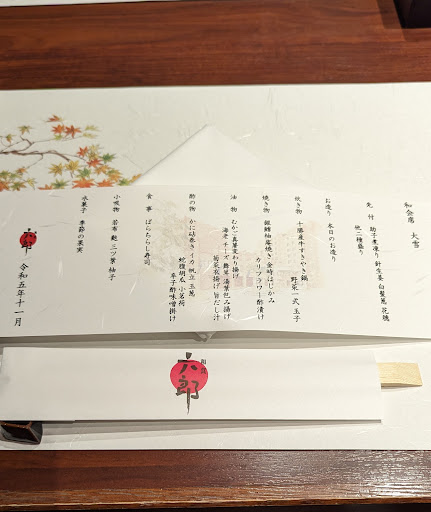 和会席 大雪
先付 助子煮凍り 針生姜 白髪葱 花穂
他二種盛り
お造り 本日のお造り
炊き物 十勝産牛すきやき鍋
野菜一式 玉子
焼き物 銀鱈柚庵焼き 金時 はじかみ
カリフラワー酢漬け
油物 むかご真薯変わり揚げ
海老 チーズ 舞茸 湯葉包み揚げ
菊菜衣揚げ 旨だし汁
酢の物 かに砧巻き イカ 帆立 玉葱
蛇腹胡瓜 小茗荷
辛子酢味噌掛け
食事 ばらちらし寿司
小吸物 若布 麩 三つ葉 柚子
水菓子 季節の果実
令和五年十一月
六郎